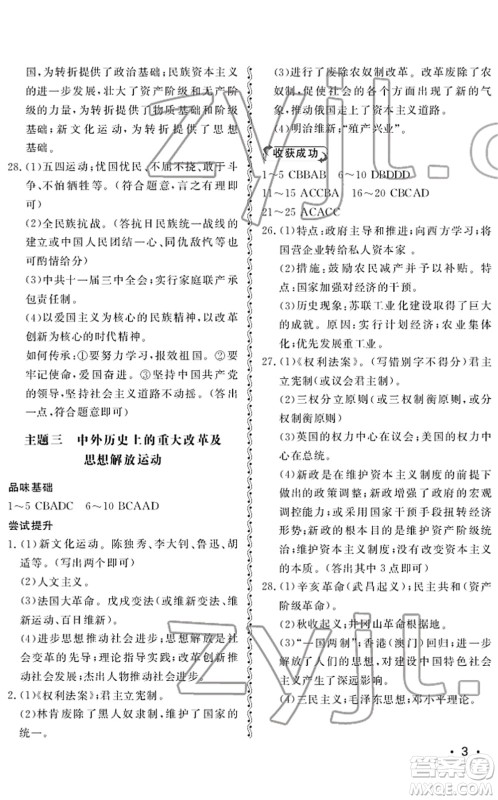 国。为转折提供了政治基础；民族资本主义
的进一步发展，壮大了资产阶级和无产阶
级的力量，为转折提供了物质基础和阶级
基础；新文化运动，为转折提供了思想
基础。
28.(1)五四运动；忧国忧民、不屈不挠、敢于斗
争、不怕牺牲等。(符合题意，言之有理
即可)
(2)全民族抗战。(答抗日民族统一战线的建
立或中国人民团结一心、同仇敌忾等也可
酌情给分)
(3)中共十一届三中全会；实行家庭联产承
包责任制。
(4)以爱国主义为核心的民族精神，以改革
创新为核心的时代精神。
如何传承：①要努力学习，报效祖国；②要
牢记使命、振兴中华；③坚持中国共产党
的领导，坚持社会主义道路不动摇。(答出
一点，符合题意即可)
主题三 中外历史上的重大改革及
思想解放运动
品味基础
1～5 CBADC 6～10 BCAAD
尝试提升
1.(1)新文化运动。陈独秀、李大钊、鲁迅、胡
适等。(写出两个即可)
(2)人文主义。
(3)法国大革命。戊戌变法(或维新变法、维
新运动、百日维新)
(4)进步思想推动社会进步；思想解放是社
会变革的先导；先进理论指导社会实践；
思想解放推动社会进步等。
2.(1)《权利法案》；君主立宪制。
(2)林肯废除了黑人奴隶制，维护了国家的
统一。
(3)进行了废除农奴制改革。废除了农奴
制，促使社会的各方面出现了新的
气象，推动俄国走上了资本主义道路。
(4)明治维新；“殖产兴业”。
收获成功
1～5 CBBAB 6～10 DBDDD
11～15 ACCBA 16～20 CBCAD
21～25 ACACC
26.(1)特点：政府主导和推进；向西方学习；将
国营企业转给私人资本家 。
(2)措施：鼓励农民减产并给予补偿。
根本措施：加强国家对经济的干预。
(3)历史现象：苏联工业化建设取得了巨大
的成就。 启示：优先发展农业；农业集体
化；优先发展重工业等。
27.(1)《权利法案》。(写错别字不得分)君主
立宪制(或议会君主制)。
(2)三权分立原则(或三权分立与制衡
原则)
(3)英国的权力中心在议会，美国的权力中
心在总统。
(4)实质：新政是在维护资本主义制度前提
下的政策调整；新政具有局限性，不可能
从根本上消除经济危机；新政是在维护资
本主义制度前提下用国家干预手段扭转经济
形势；新政的根本目的是维护资本主义
制度；新政没有改变资本主义
本质。(答出其中3点即可)
28.(1)辛亥革命(武昌起义)；民主共和(资产
阶级革命)。
(2)秋收起义；井冈山革命根据地。
(3)“一国两制”；香港(澳门)回归；以经济
建设为中心；改革开放；走出一条建设中
国特色社会主义道路。
(4)三民主义；毛泽东思想；邓小平理论。
· 3 ·
zyjl.cn
zyjl.cn
答案圈
MXQE.COM